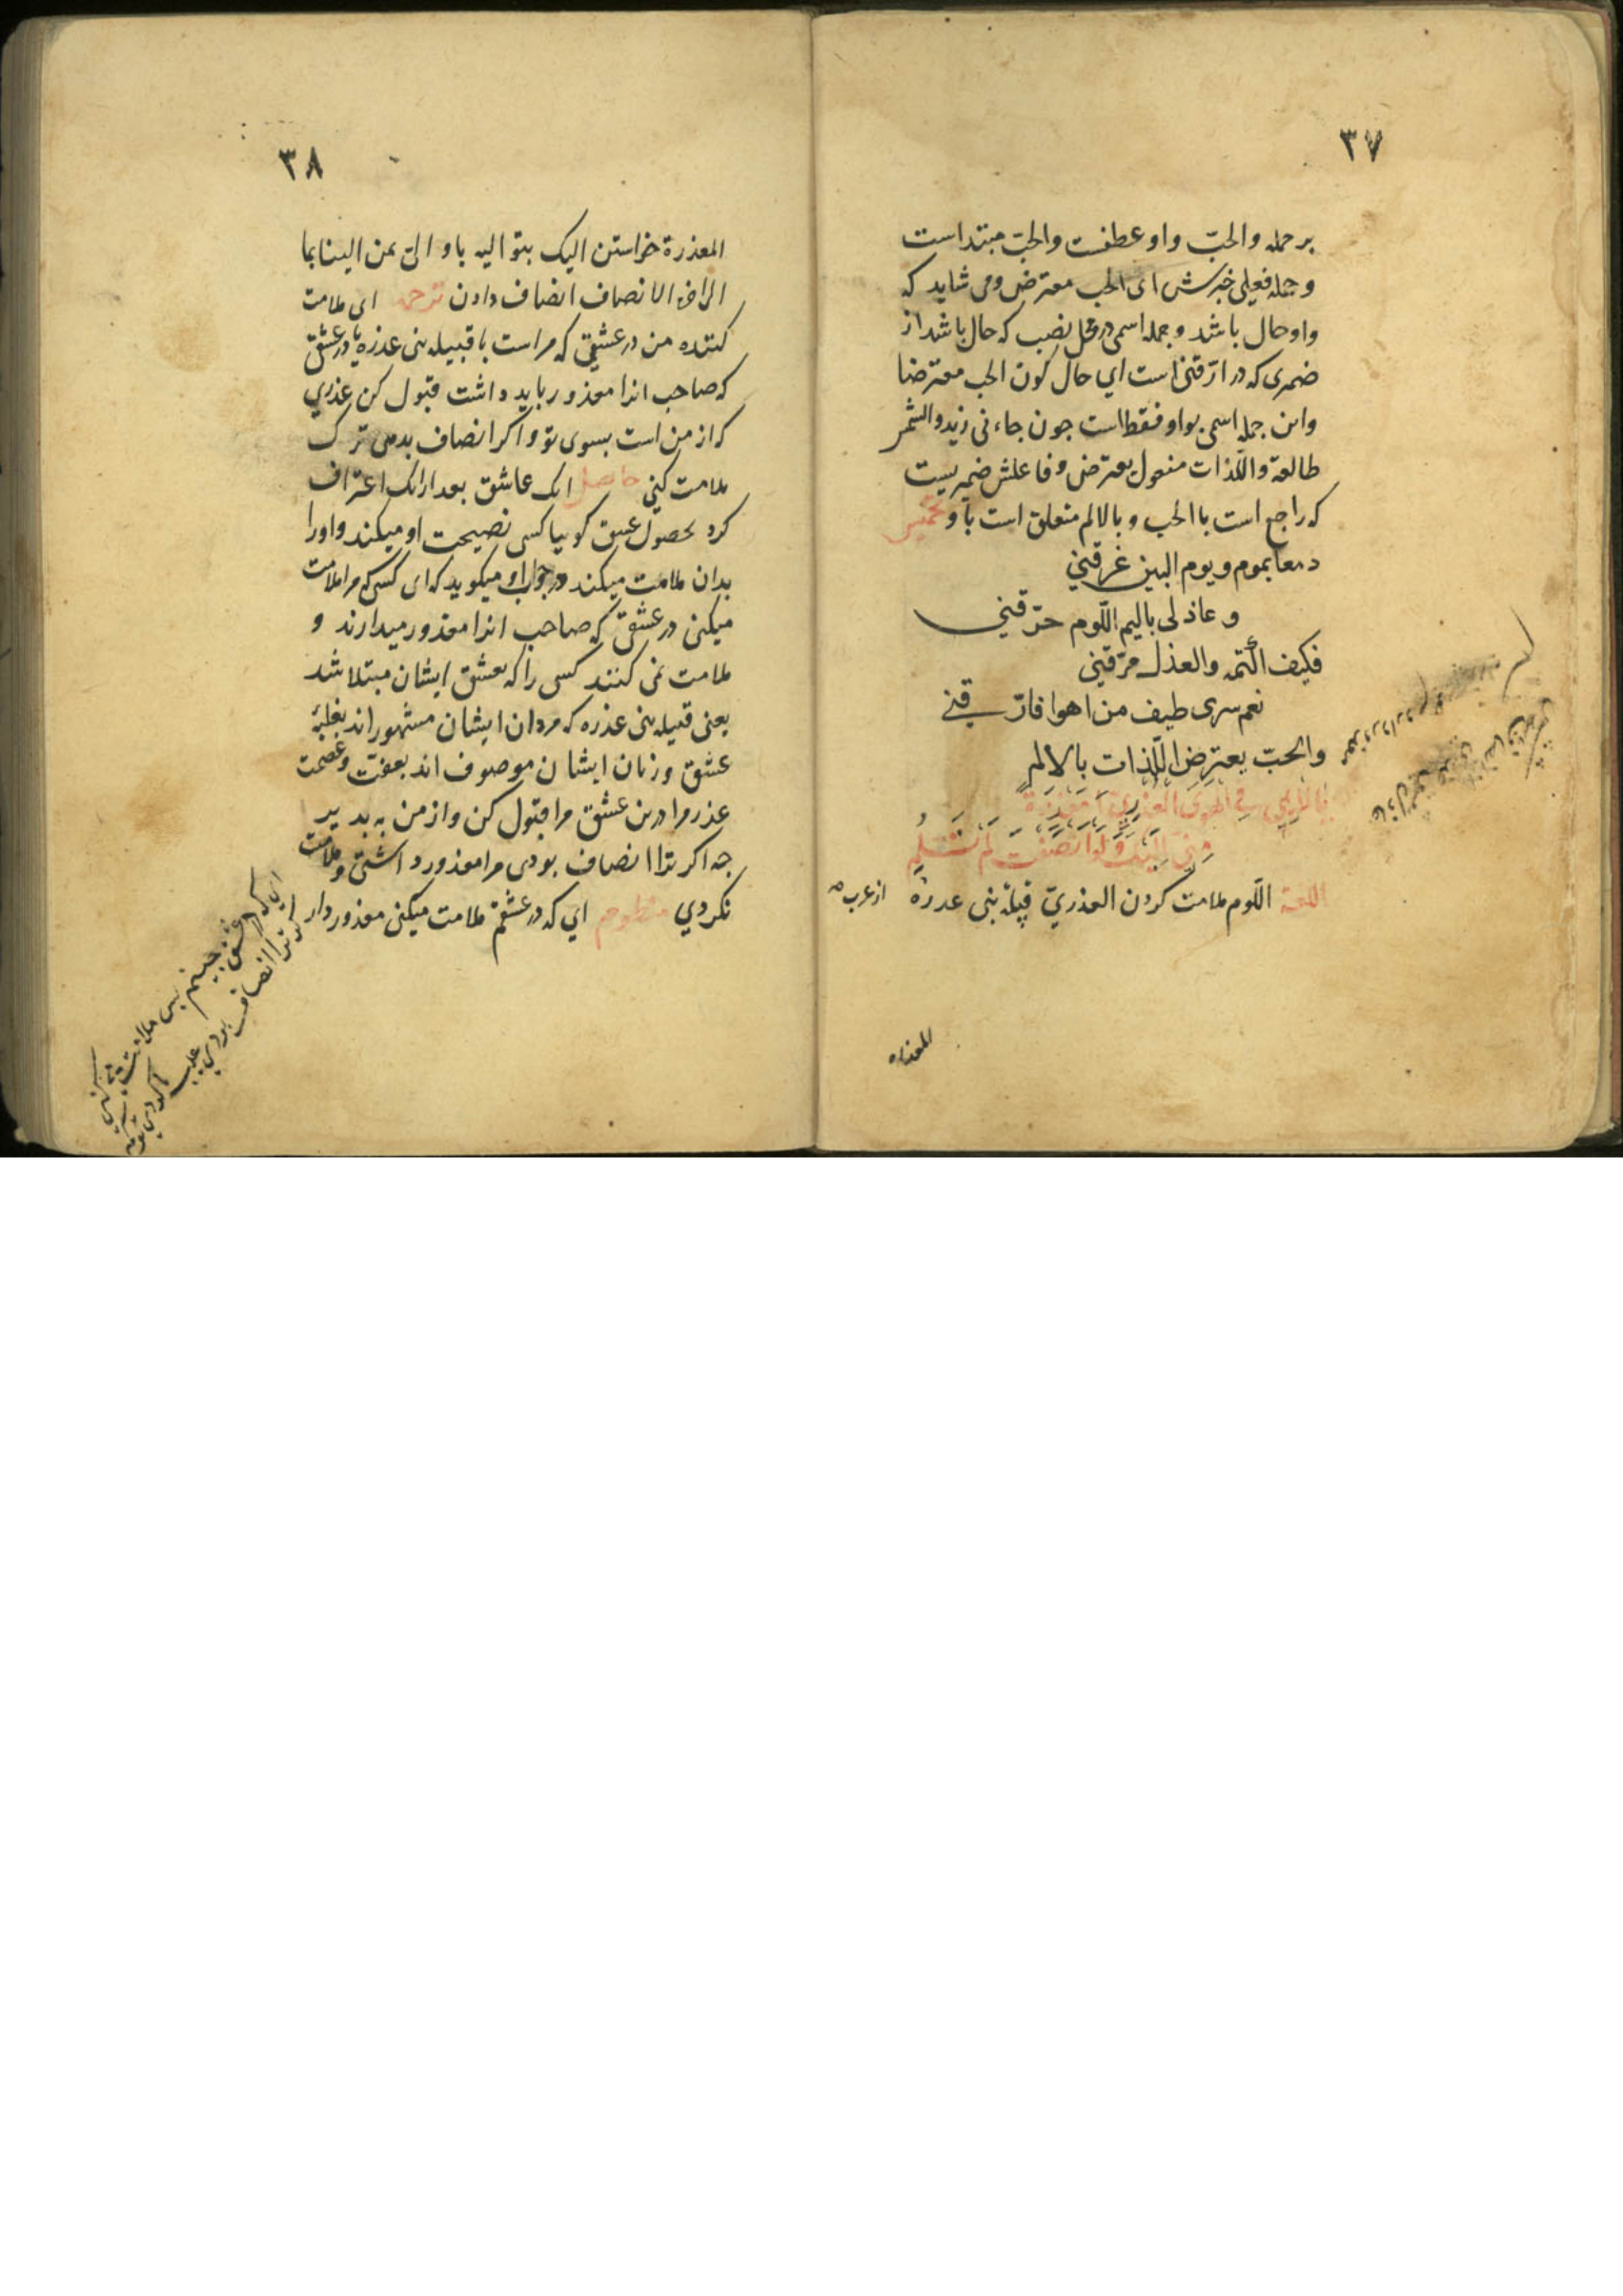 ٣٧
بر جمله والحبّ واو عطفست والحبّ مبتداست
و جمله فعیلی خبرش ای الحب معترض ومی شاید که
واو حال باشد و جمله اسمی در محل نصب که حال باشد از
ضمیری که در ارّقنی است ای حال کون الحب معترضا
واین جمله اسمی بواو فقط است جون جاءنی زید والشمس
طالعة واللّذات مفعول یعترض و فاعلش ضمیریست
که راجع است با الحب و بالالم متعلق است باو تخمیس
دمعا بموم ویوم البین غرقنی
وعاذلی بالیم اللّوم حرّقنی
فکیف اکتمه والعذل مزّقنی
نعم سری طیف من اهوا فارّقنی
والحبّ یعترض اللّذات بالالم
یا لائمی فی الهوی العذریّ معذرة
منّی الیک ولو انصفت لم تلم
اللغة اللّوم ملامت کردن العذریّ قبیلهٔ بنی عذره از عرب
المعذرة
٣٨
المعذرة خواستن الیک بتو الیه باو الیّ بمن الینا بما
الی اخره الانصاف انصاف دادن ترجمه ای ملامت
کننده من در عشقی که مراست با قبیله بنی عذره یا در عشق
که صاحب انرا معذور باید داشت قبول کن عذری
که از من است بسوی تو واکر انصاف بدهی ترک
ملامت کنی حاصل انک عاشق بعد ازانک اعتراف
کرد بحصول عشق کوییا کسی نصیحت او میکند واورا
بدان ملامت میکند در جواب او میکوید که ای کسی که مرا ملامت
میکنی در عشقی که صاحب انرا معذور میدارند و
ملامت نمی کنند کسی را که بعشق ایشان مبتلا شد
یعنی قبیله بنی عذره که مردان ایشان مشهور اند بغلبهٔ
عشق وزنان ایشان موصوف اند بعفّت وعصمت
عذر مرا درین عشق مرا قبول کن واز من به پذیر
جه اکر ترا انصاف بودی مرا معذور داشتی وملامت
نکردی منظوم ای که در عشقم ملامت میکنی معذور دار
کر ترا انصاف بودی
ای که در عشق جنینم بس ملامت میکنی